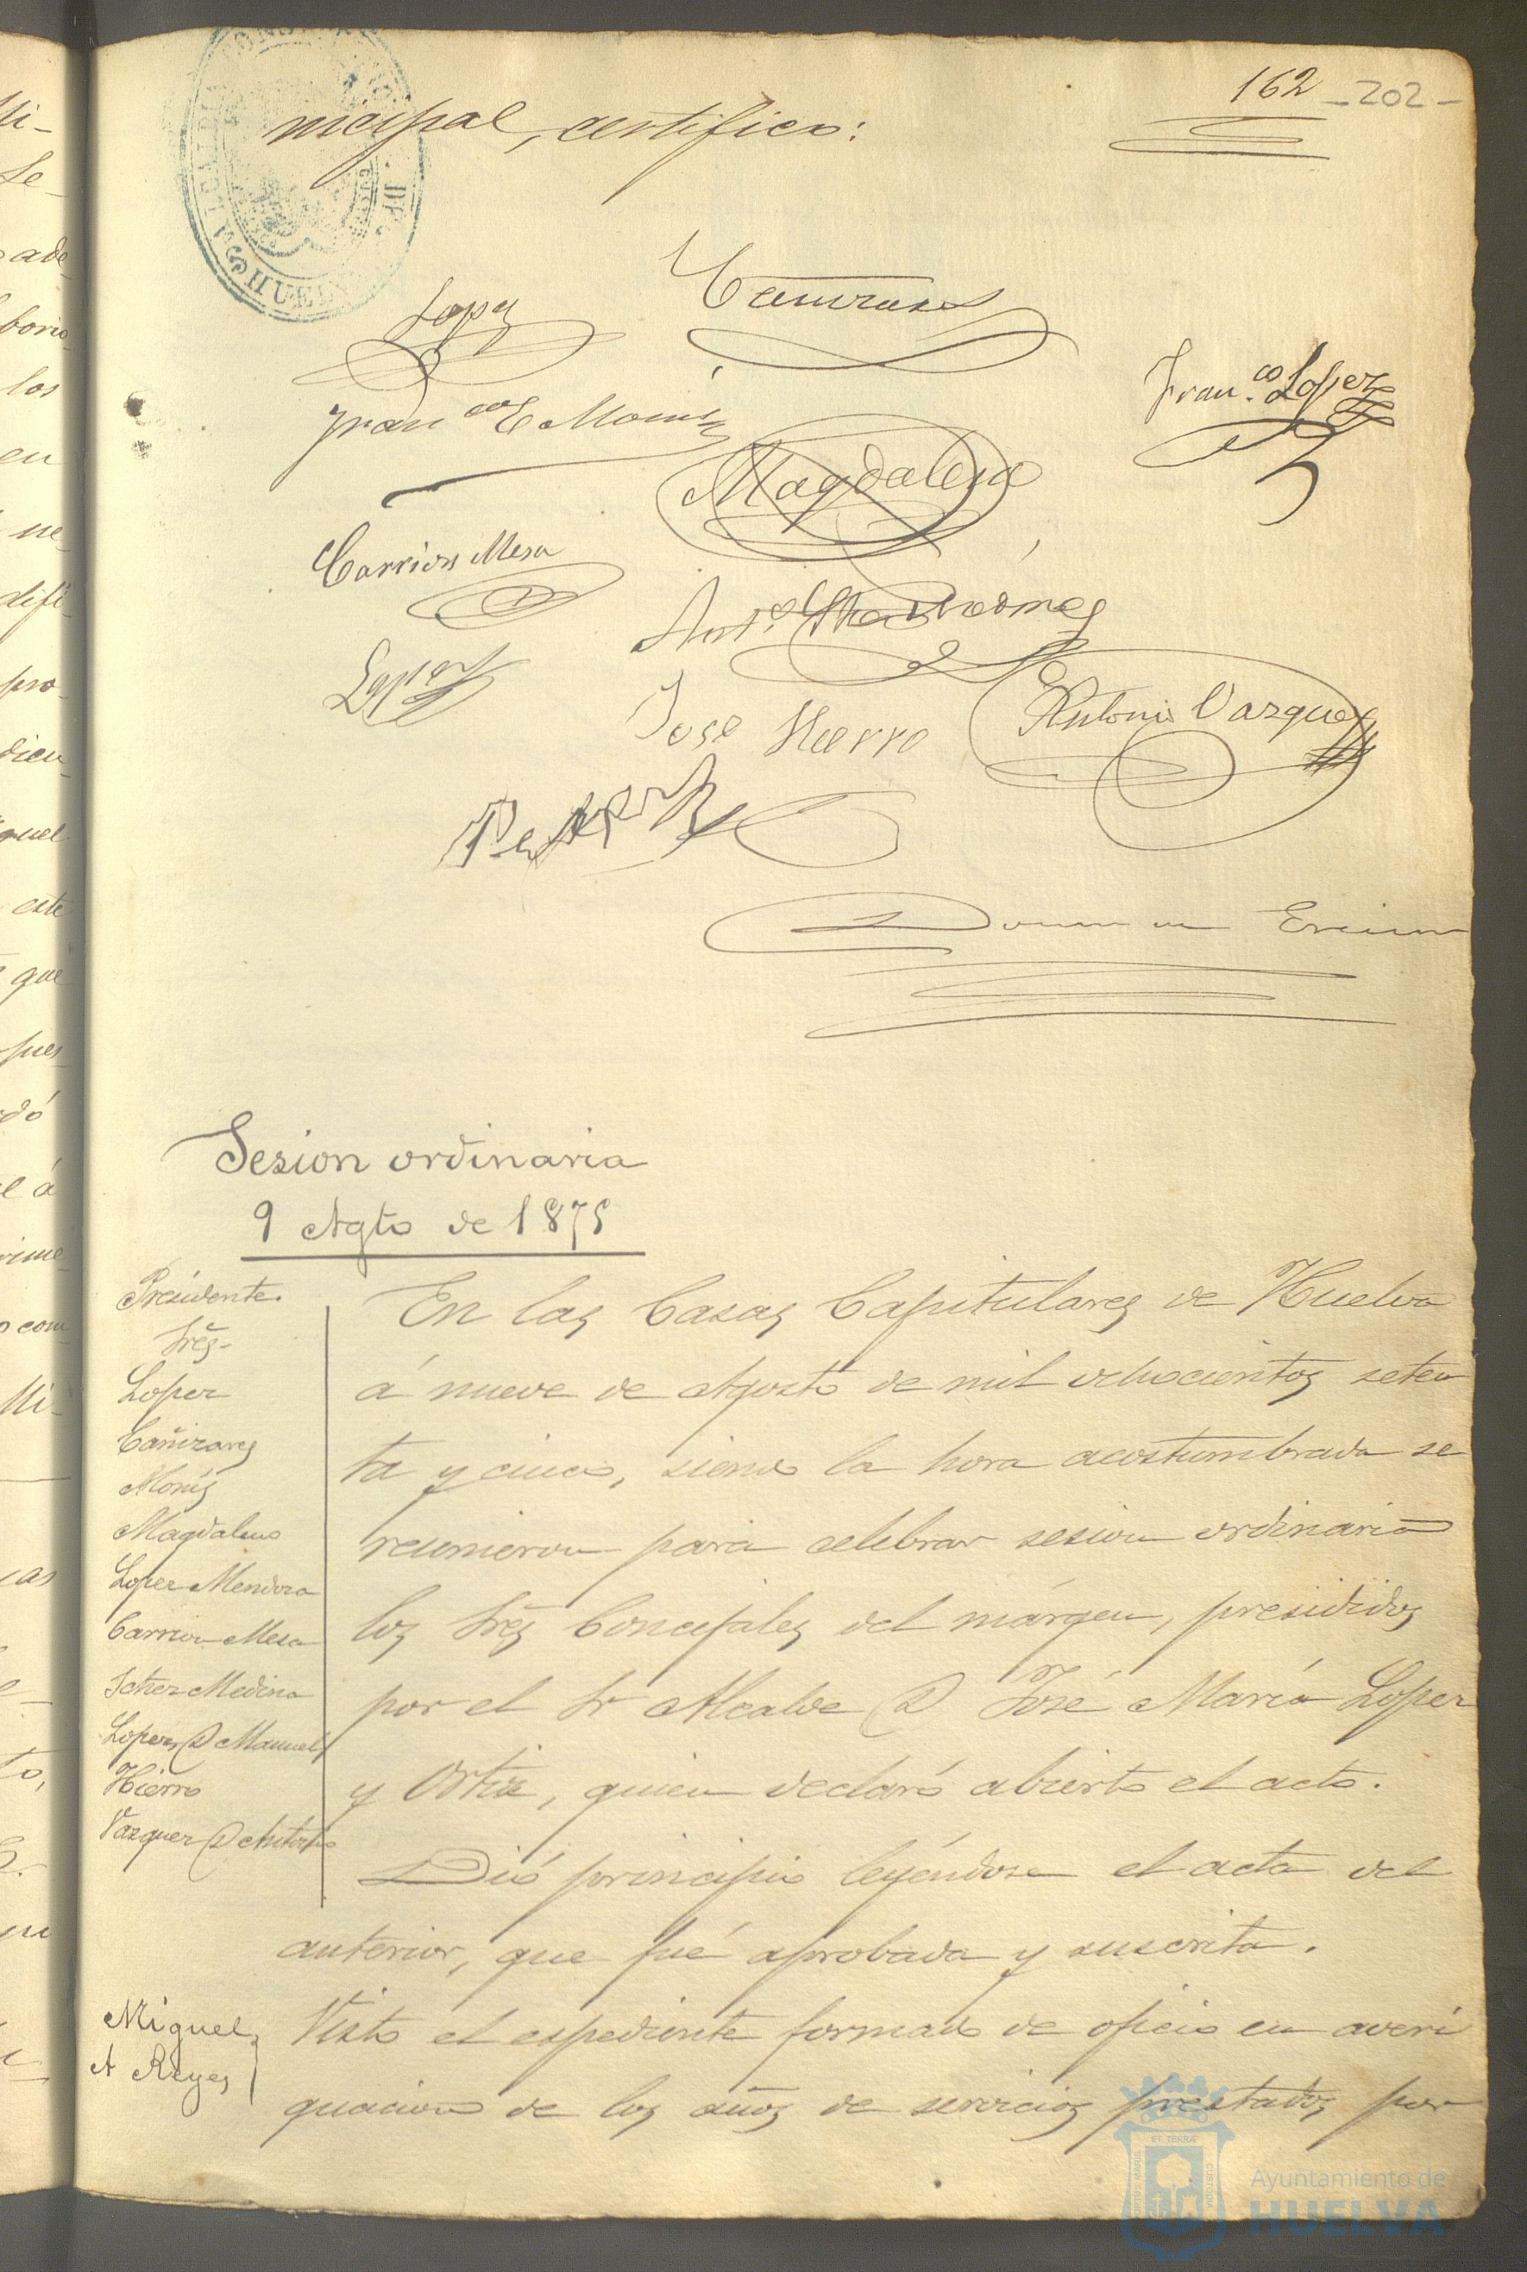 162 - 202 -
nicipal, certifico:
Lopez
Cañizares
Fran.co Lopez
Fran co E Monis
Magdaleno
Carrion Mesa
Ant.o Schez Medina
Lopez
José Hierro
Antonio Vazquez
Sesion ordinaria
9 Agto de 1875
Presidente.
Sres.
Lopez
Cañizares
Monis
Magdaleno
Lopez Mendoza
Carrion Mesa
Schez Medina
Lopez, D Manuel
Hierro
Vazquez D Antonio
En las Casas Capitulares de Huelva
á nueve de Agosto de mil ochocientos seten
ta y cinco, siendo la hora acostumbrada se
reunieron para celebrar sesion ordinaria
los Sres Concejales del márgen, presididos
por el Sr Alcalde D José María Lopez
y Ortiz, quien declaró abierto el acto.
Dió principio leyéndose el acta del
anterior, que fué aprobada y suscrita.
Miguel
A Reyes
Visto el espediente formado de oficio en averi
guacion de los años de servicios prestados por
Ayuntamiento de
HUELVA